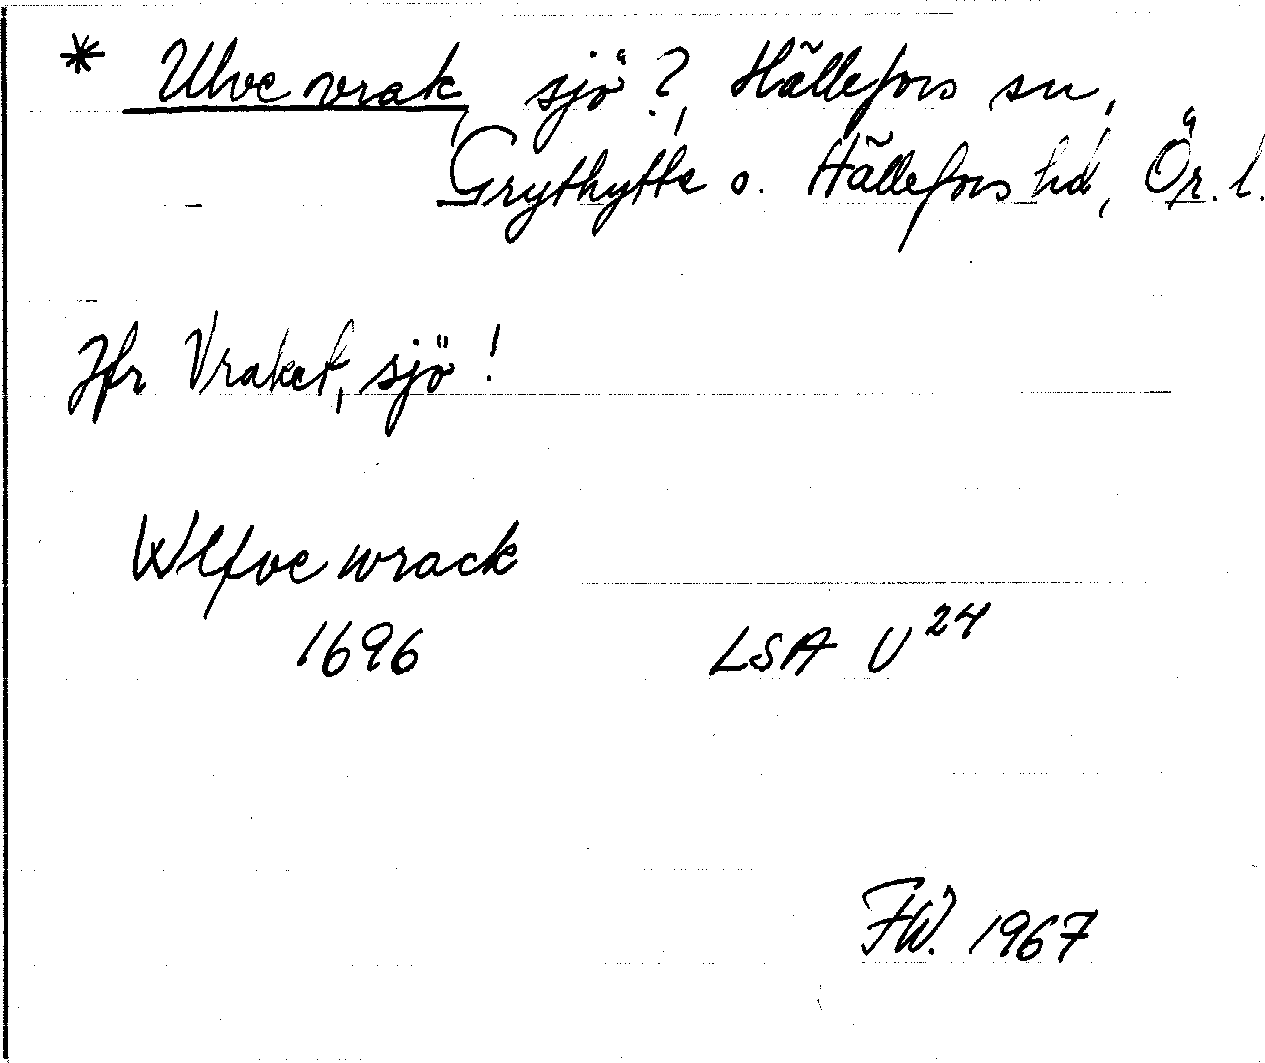 * Ulvevrak, sjö?, Hällefors sn,
Grythytte o. Hällefors hd, Ör. l.
Jfr Vraket, sjö!
Wlfvewrack
1696 LSA U24
FW. 1967